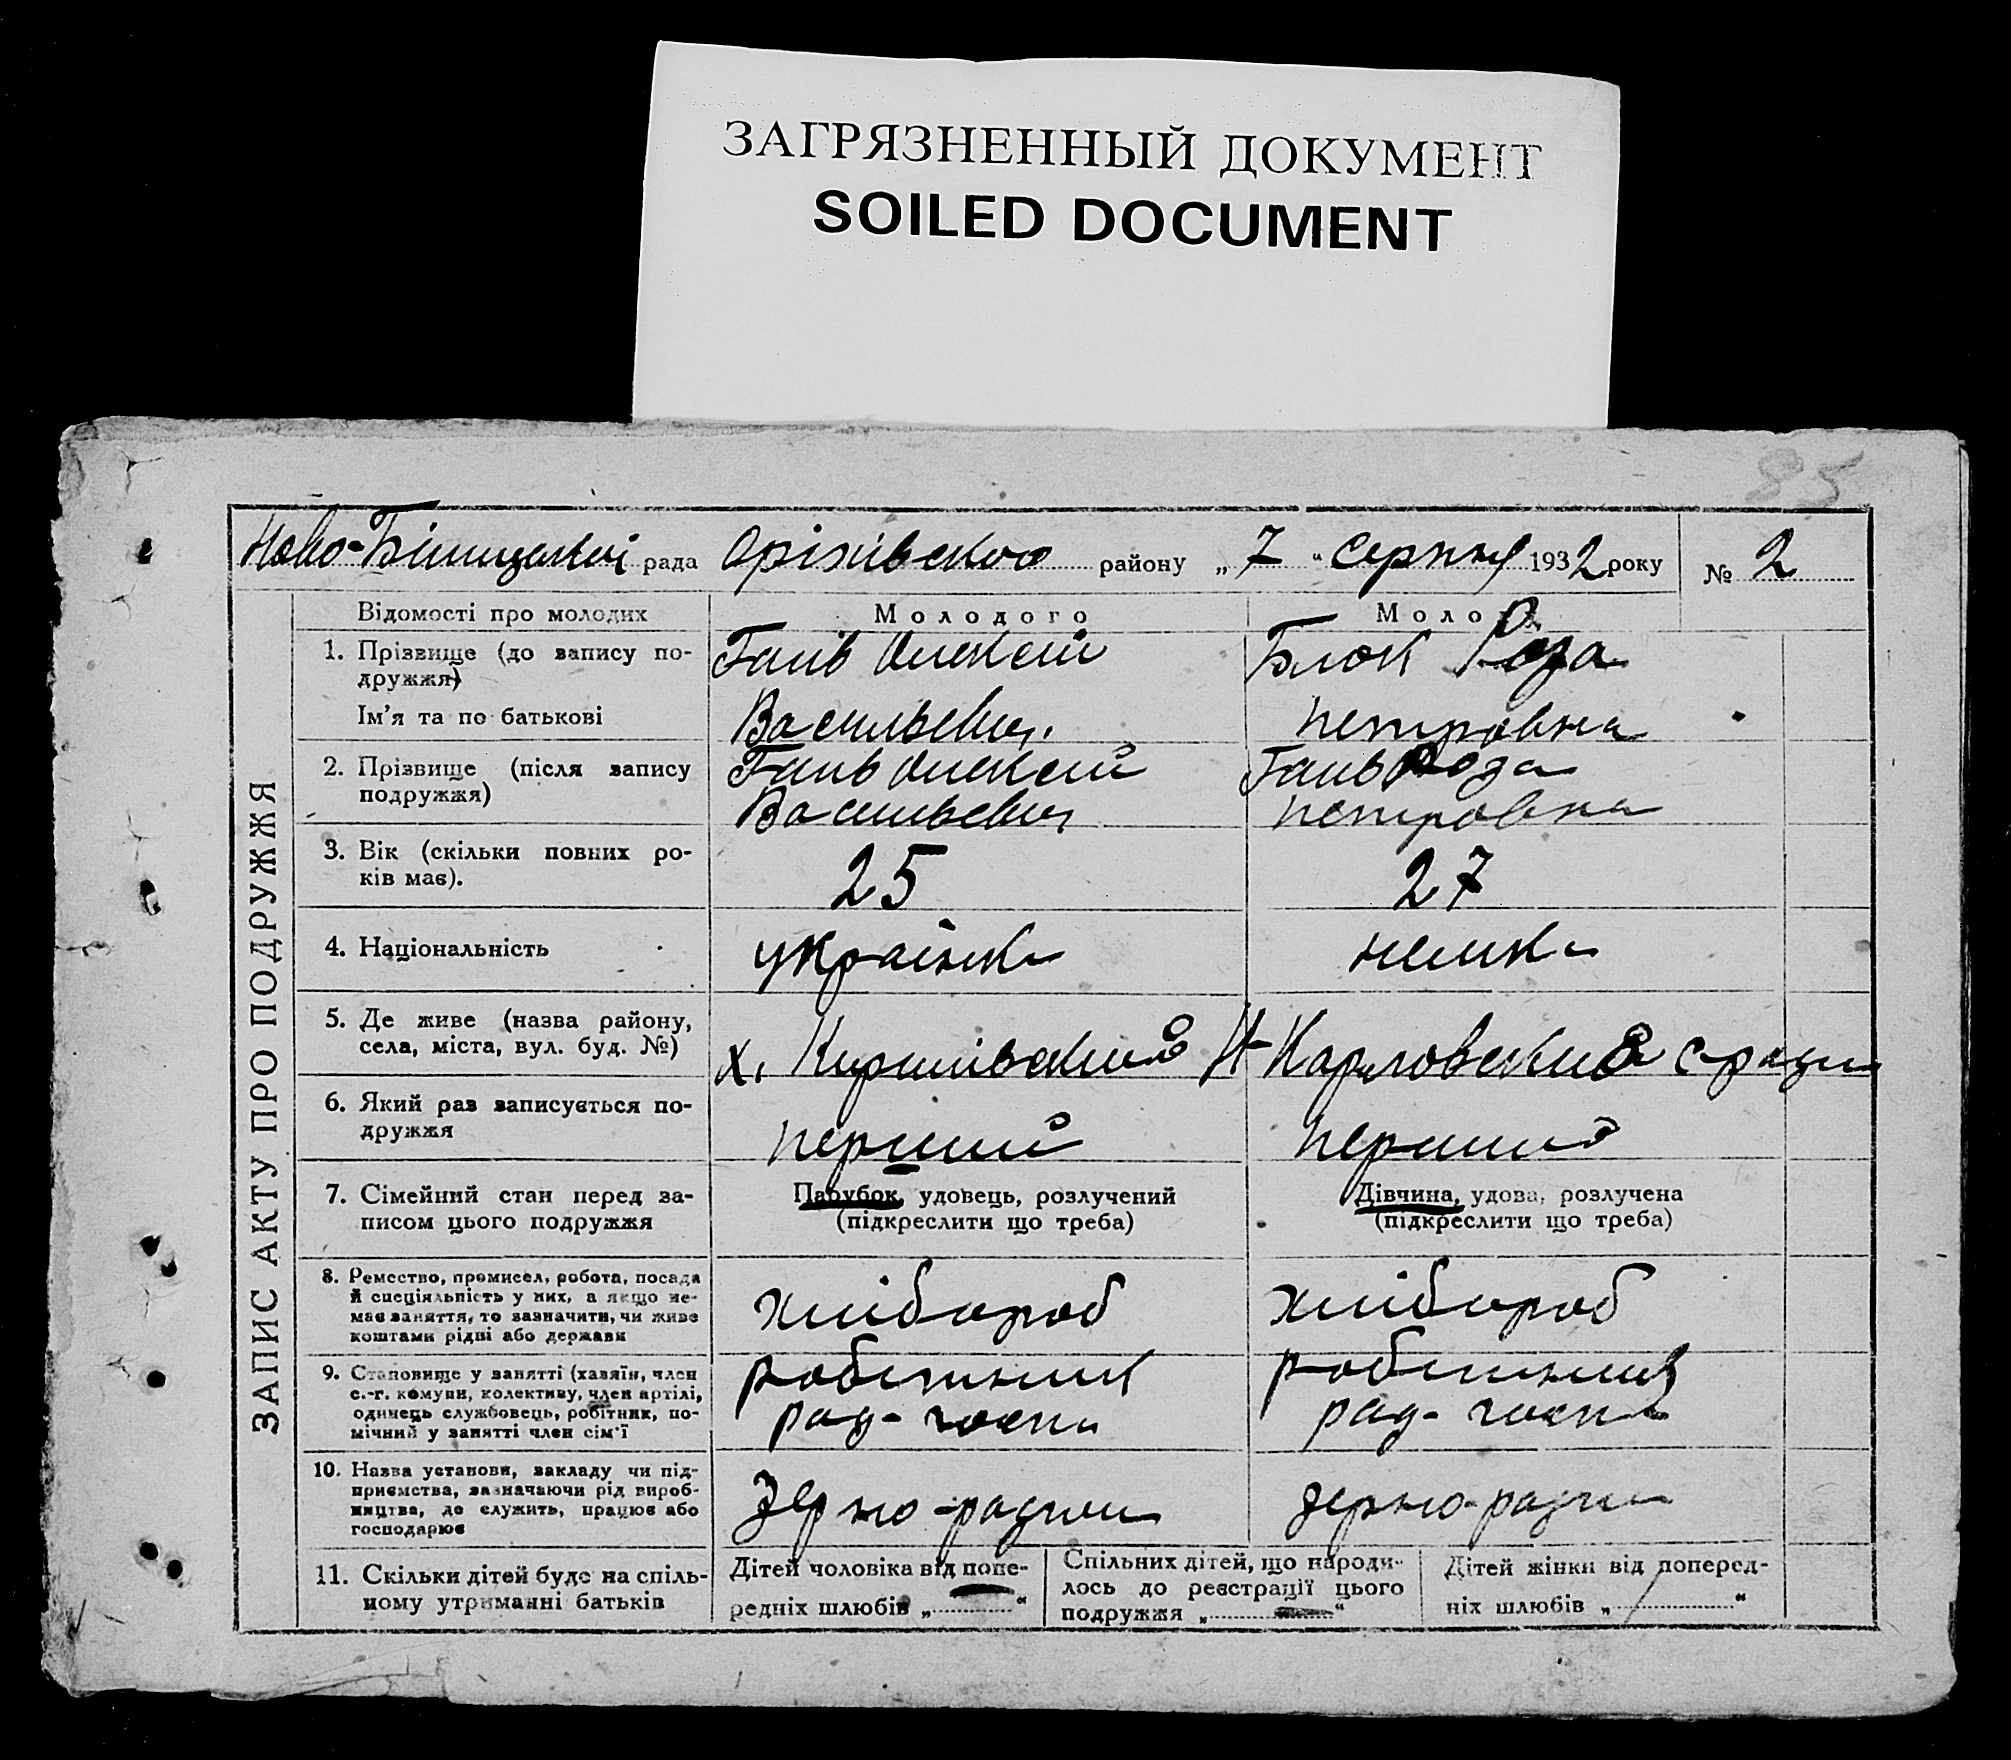 ЗАГРЯЗНЕННЫЙ ДОКУМЕНТ
SOILED DOCUMENT
85
рада Оріхівского району „ 7 “ серпня 1932 року № 2
ЗАПИС АКТУ ПРО ПОДРУЖЖЯ
Відомості про молодих
Молодого
Моло
1. Прізвище (до запису по-
дружжя)
Ім'я та по батькові
Ганів Олексій
Васильевич
Блок Роза
Петровна
2. Прізвище (після запису
подружжя)
Олексій
Васильевич
Роза
Петровна
3. Вік (скільки повних ро-
ків має).
25
27
4. Національність
українк
немка
5. Де живе (назва району,
села, міста, вул. буд. №)
х.
Н-Карловский
6. Який раз записується по-
дружжя
перший
перший
7. Сімейний стан перед за-
писом цього подружжя
Парубок, удовець, розлучений
(підкреслити що треба)
Дівчина, удова, розлучена
(підкреслити що треба)
8. Ремество, промисел, робота, посада
й спеціяльність у них, а якщо не-
має заняття, то зазначити, чи живе
коштами рідні або держави
хлібороб
хлібороб
9. Становище у занятті (хазяїн, член
с.-г. комуни, колективу, член артілі,
одинець службовець, робітник, по-
мічний у занятті член сім'ї
робітник
рад-госпа
робітник
рад-госпа
10. Назва установи, закладу чи під-
приємства, зазначаючи рід вироб-
ництва, де служить, працює або
господарює
Зерно-радгосп
зерно-радгосп
11. Скільки дітей буде на спіль-
ному утриманні батьків
Дітей чоловіка від попе-
редніх шлюбів „ “
Спільних дітей, що народи-
лось до реєстрації цього
подружжя „ “
Дітей жінки від поперед-
ніх шлюбів „ “